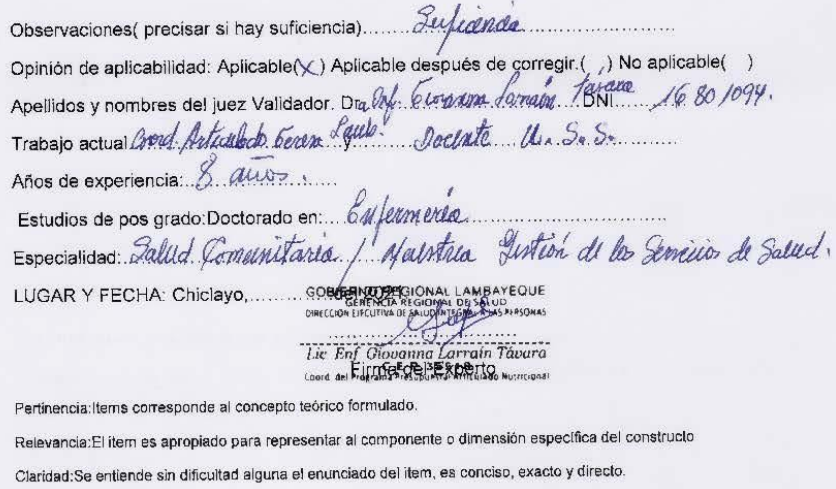 Observaciones( precisar si hay suficiencia)........Suficiencia........
Opinión de aplicabilidad: Aplicable(X) Aplicable después de corregir.( ,) No aplicable( )
Apellidos y nombres del juez Validador. Dra Enf. Giovanna Larraín Távara DNI...... 16801094.
Trabajo actual Coord. Articulado Geresa Lamb. y Docente U.S.S.
Años de experiencia:..8 años.......
Estudios de pos grado:Doctorado en:....Enfermería........
Especialidad:..Salud Comunitaria / Maestría Gestión de los Servicios de Salud.
LUGAR Y FECHA: Chiclayo,.........del 2021
GOBIERNO REGIONAL LAMBAYEQUE
GERENCIA REGIONAL DE SALUD
DIRECCIÓN EJECUTIVA DE SALUD INTEGRAL A LAS PERSONAS
Lic Enf Giovanna Larraín Távara
Firma del Experto
Coord. del Programa Presupuestal Articulado Nutricional
Pertinencia:Items corresponde al concepto teórico formulado.
Relevancia:El item es apropiado para representar al componente o dimensión especifica del constructo
Claridad:Se entiende sin dificultad alguna el enunciado del item, es conciso, exacto y directo.